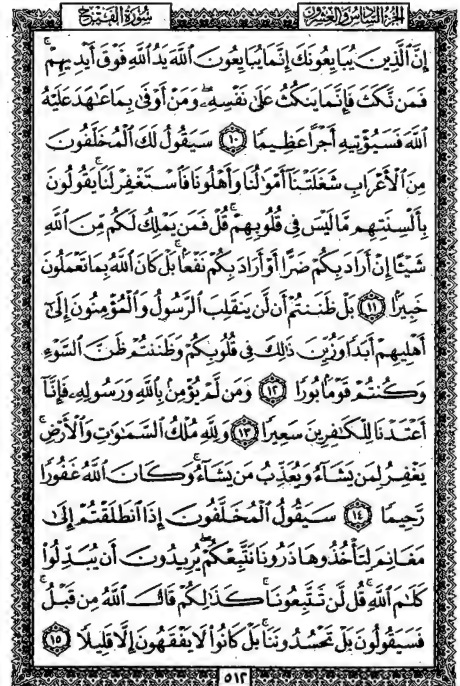 الجزء السادس والعشرون
سورة الفتح
إِنَّ ٱلَّذِينَ يُبَايِعُونَكَ إِنَّمَا يُبَايِعُونَ ٱللَّهَ يَدُ ٱللَّهِ فَوْقَ أَيْدِيهِمْ ۚ
فَمَن نَّكَثَ فَإِنَّمَا يَنكُثُ عَلَىٰ نَفْسِهِۦ ۖ وَمَنْ أَوْفَىٰ بِمَا عَٰهَدَ عَلَيْهُ
ٱللَّهَ فَسَيُؤْتِيهِ أَجْرًا عَظِيمًا ١٠ سَيَقُولُ لَكَ ٱلْمُخَلَّفُونَ
مِنَ ٱلْأَعْرَابِ شَغَلَتْنَآ أَمْوَٰلُنَا وَأَهْلُونَا فَٱسْتَغْفِرْ لَنَا ۚ يَقُولُونَ
بِأَلْسِنَتِهِم مَّا لَيْسَ فِى قُلُوبِهِمْ ۚ قُلْ فَمَن يَمْلِكُ لَكُم مِّنَ ٱللَّهِ
شَيْـًٔا إِنْ أَرَادَ بِكُمْ ضَرًّا أَوْ أَرَادَ بِكُمْ نَفْعًۢا ۚ بَلْ كَانَ ٱللَّهُ بِمَا تَعْمَلُونَ
خَبِيرًۢا ١١ بَلْ ظَنَنتُمْ أَن لَّن يَنقَلِبَ ٱلرَّسُولُ وَٱلْمُؤْمِنُونَ إِلَىٰٓ
أَهْلِيهِمْ أَبَدًا وَزُيِّنَ ذَٰلِكَ فِى قُلُوبِكُمْ وَظَنَنتُمْ ظَنَّ ٱلسَّوْءِ
وَكُنتُمْ قَوْمًۢا بُورًا ١٢ وَمَن لَّمْ يُؤْمِنۢ بِٱللَّهِ وَرَسُولِهِۦ فَإِنَّآ
أَعْتَدْنَا لِلْكَٰفِرِينَ سَعِيرًا ١٣ وَلِلَّهِ مُلْكُ ٱلسَّمَٰوَٰتِ وَٱلْأَرْضِ ۚ
يَغْفِرُ لِمَن يَشَآءُ وَيُعَذِّبُ مَن يَشَآءُ ۚ وَكَانَ ٱللَّهُ غَفُورًا
رَّحِيمًا ١٤ سَيَقُولُ ٱلْمُخَلَّفُونَ إِذَا ٱنطَلَقْتُمْ إِلَىٰ
مَغَانِمَ لِتَأْخُذُوهَا ذَرُونَا نَتَّبِعْكُمْ ۖ يُرِيدُونَ أَن يُبَدِّلُوا۟
كَلَٰمَ ٱللَّهِ ۚ قُل لَّن تَتَّبِعُونَا ۚ كَذَٰلِكُمْ قَالَ ٱللَّهُ مِن قَبْلُ ۖ
فَسَيَقُولُونَ بَلْ تَحْسُدُونَنَا ۚ بَلْ كَانُوا۟ لَا يَفْقَهُونَ إِلَّا قَلِيلًا ١٥
٥١٢